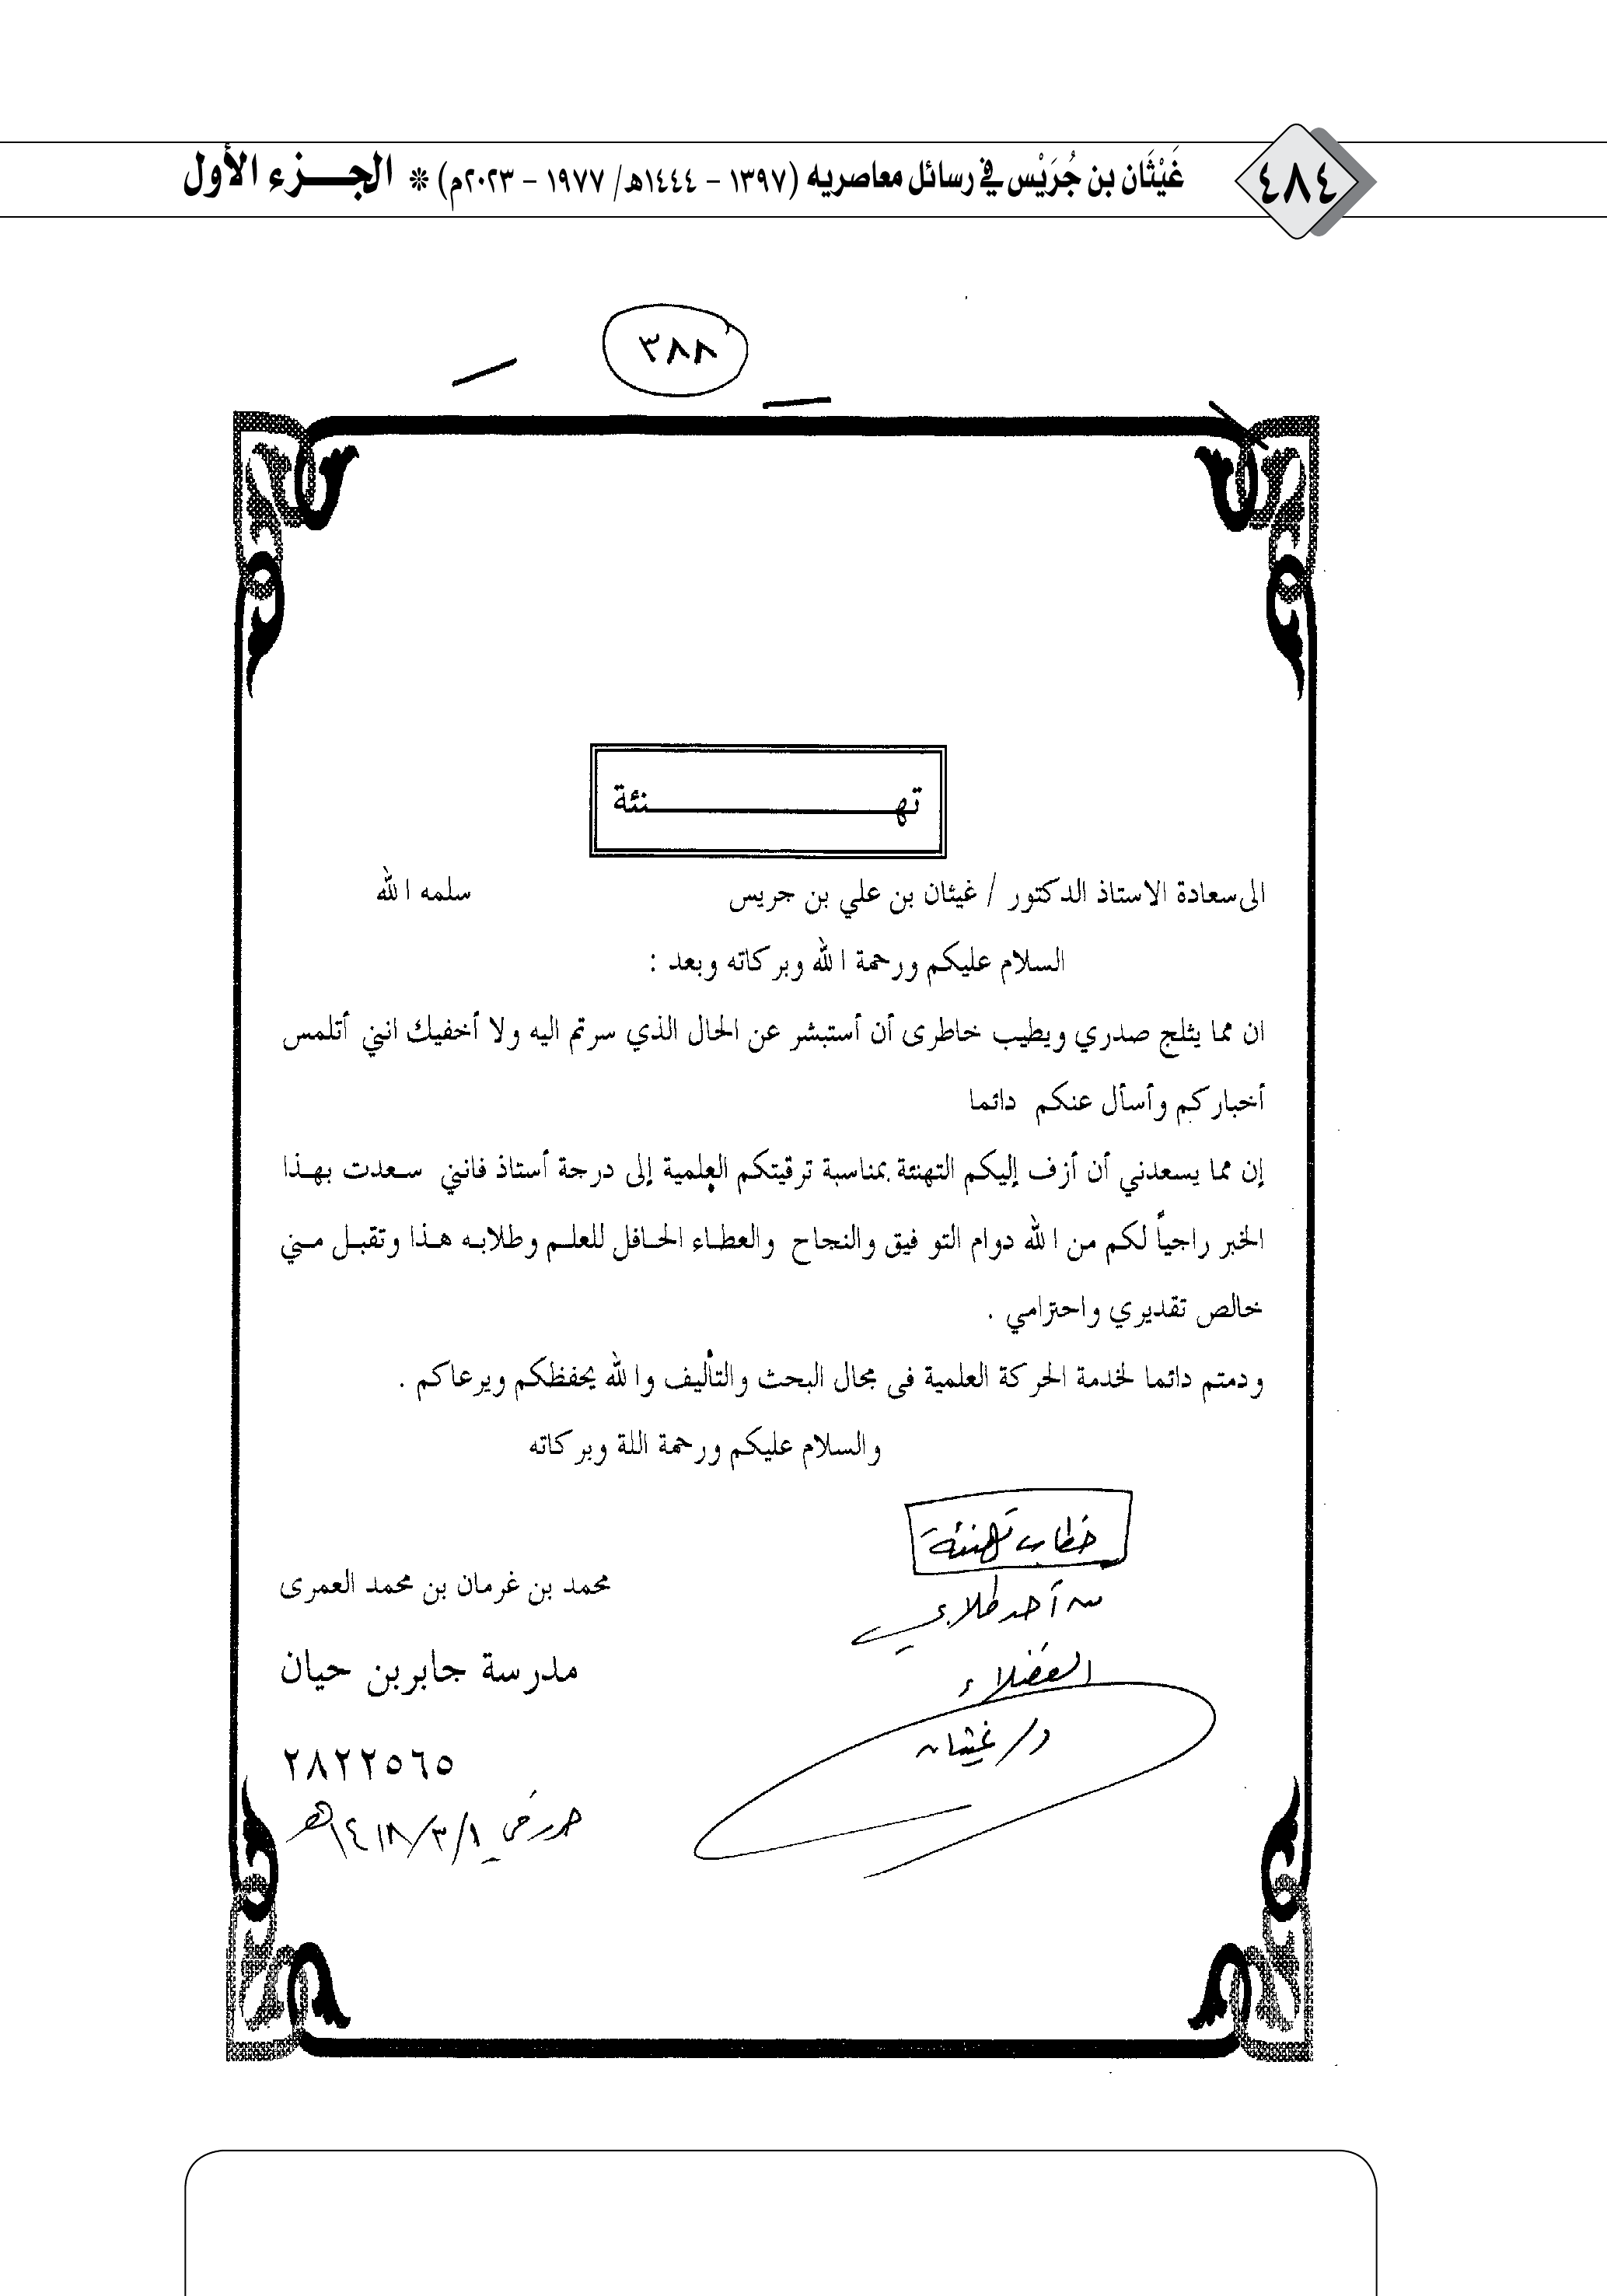 ٤٨٤
غَيْثَان بن جُرَيْس في رسائل معاصريه (١٣٩٧ - ١٤٤٤هـ/ ١٩٧٧ - ٢٠٢٣م) * الجـــزء الأول
٣٨٨
تهـــــــــنئة
الى سعادة الاستاذ الدكتور / غيثان بن علي بن جريس سلمه الله
السلام عليكم ورحمة الله وبركاته وبعد :
ان مما يثلج صدري ويطيب خاطرى أن أستبشر عن الحال الذي سرتم اليه ولا أخفيك انني أتلمس
أخباركم وأسأل عنكم دائما
إن مما يسعدني أن أزف إليكم التهنئة بمناسبة ترقيتكم العلمية إلى درجة أستاذ فانني سـعدت بهـذا
الخبر راجياً لكم من الله دوام التو فيق والنجاح والعطـاء الحـافل للعلـم وطلابـه هـذا وتقبـل مـني
خالص تقديري واحترامي .
ودمتم دائما لخدمة الحركة العلمية فى مجال البحث والتأليف والله يحفظكم ويرعاكم .
والسلام عليكم ورحمة اللة وبركاته
خطاب تهنئة
من أحد طلابي
الفضلاء
د/ غيثان
محمد بن غرمان بن محمد العمرى
مدرسة جابر بن حيان
٢٨٢٢٥٦٥
١/٣/١٤١٨هـ